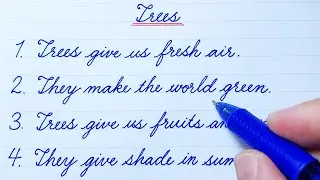 Trees
1. Trees give us fresh air.
2. They make the world green.
3. Trees give us fruits an
4. They give shade in sum